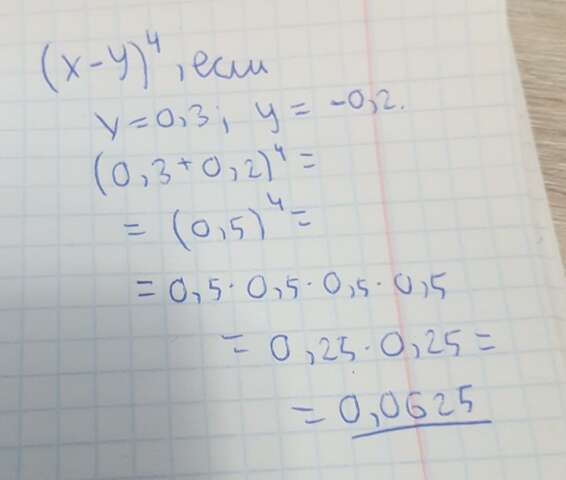 (x-y)⁴, если
x=0,3; y = -0,2.
(0,3+0,2)⁴=
= (0,5)⁴=
= 0,5·0,5·0,5·0,5
= 0,25·0,25=
= 0,0625